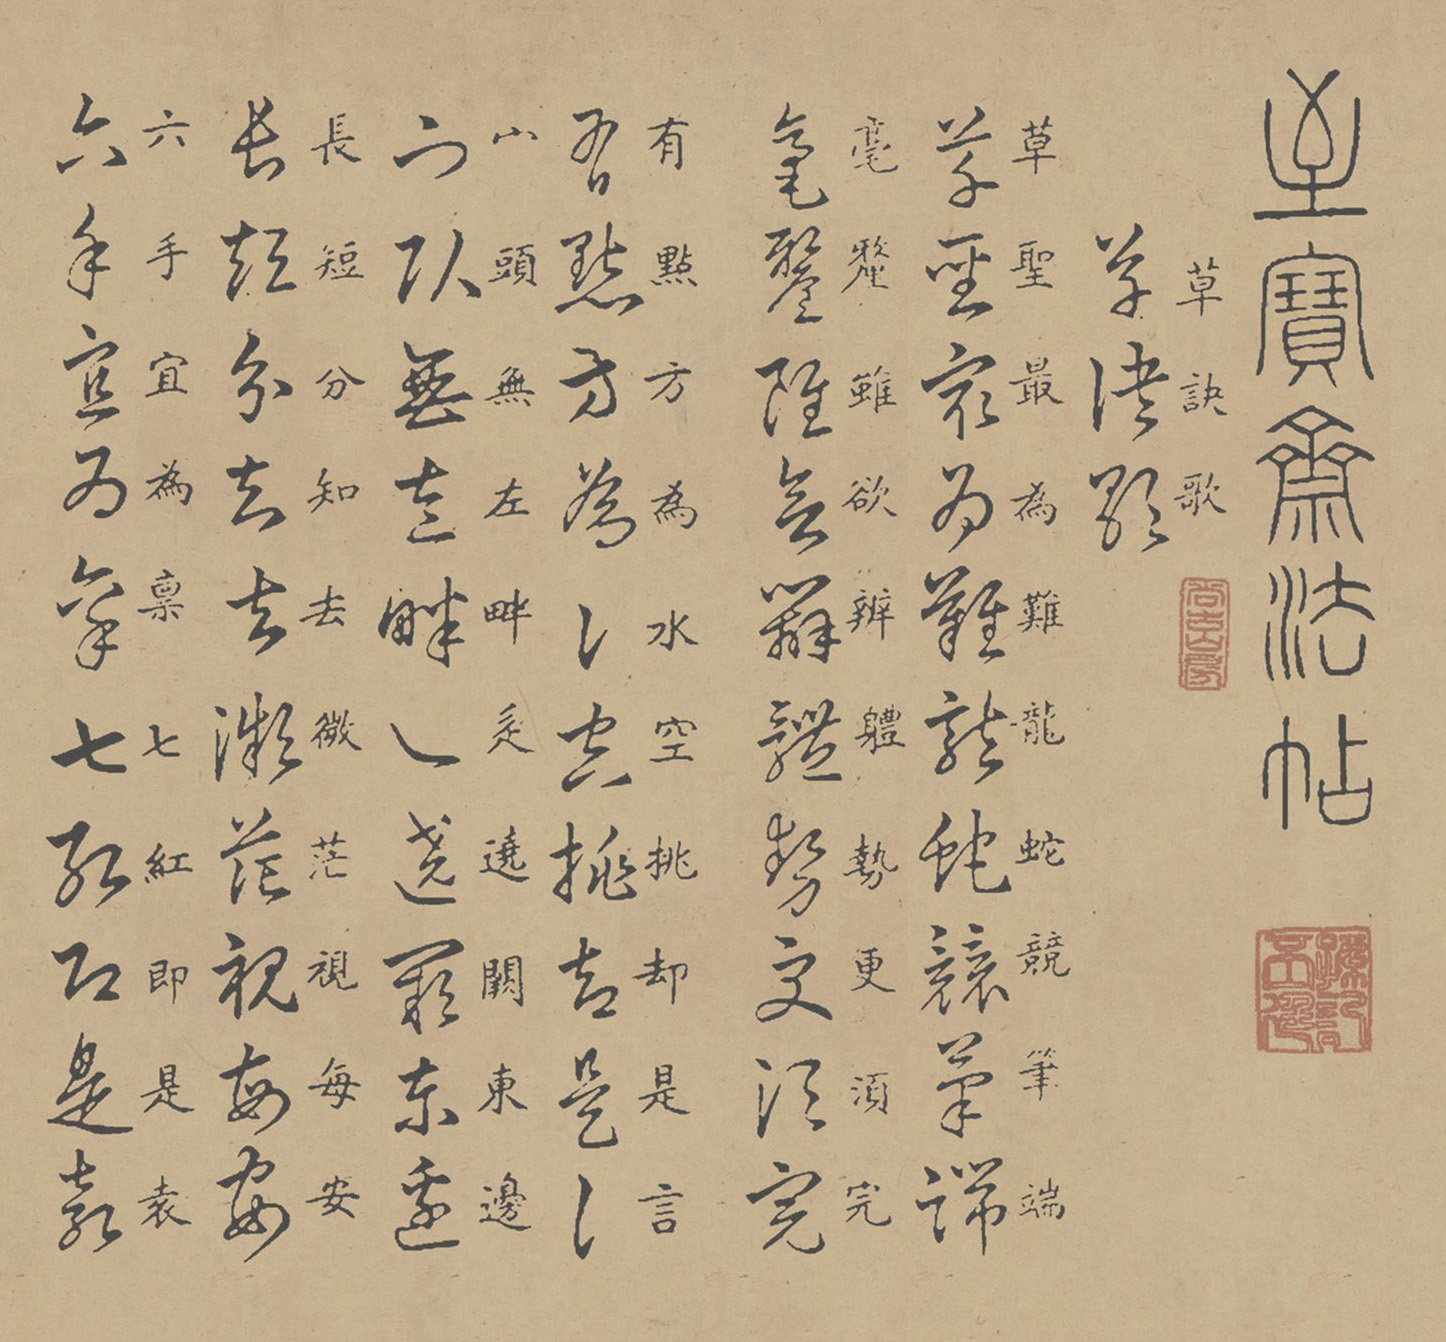 至寶齋法帖
草訣歌
草訣歌
草聖最為難龍蛇競筆端
草聖最為難龍蛇競筆端
毫釐雖欲辨體勢更須完
毫釐雖欲辨體勢更須完
有點方為水空挑却是言
有點方為水空挑却是言
宀頭無左畔辵遶闕東邊
宀頭無左畔辵遶闕東邊
長短分知去微茫視每安
長短分知去微茫視每安
六手宜為禀七紅即是袁
六手宜為禀七紅即是袁